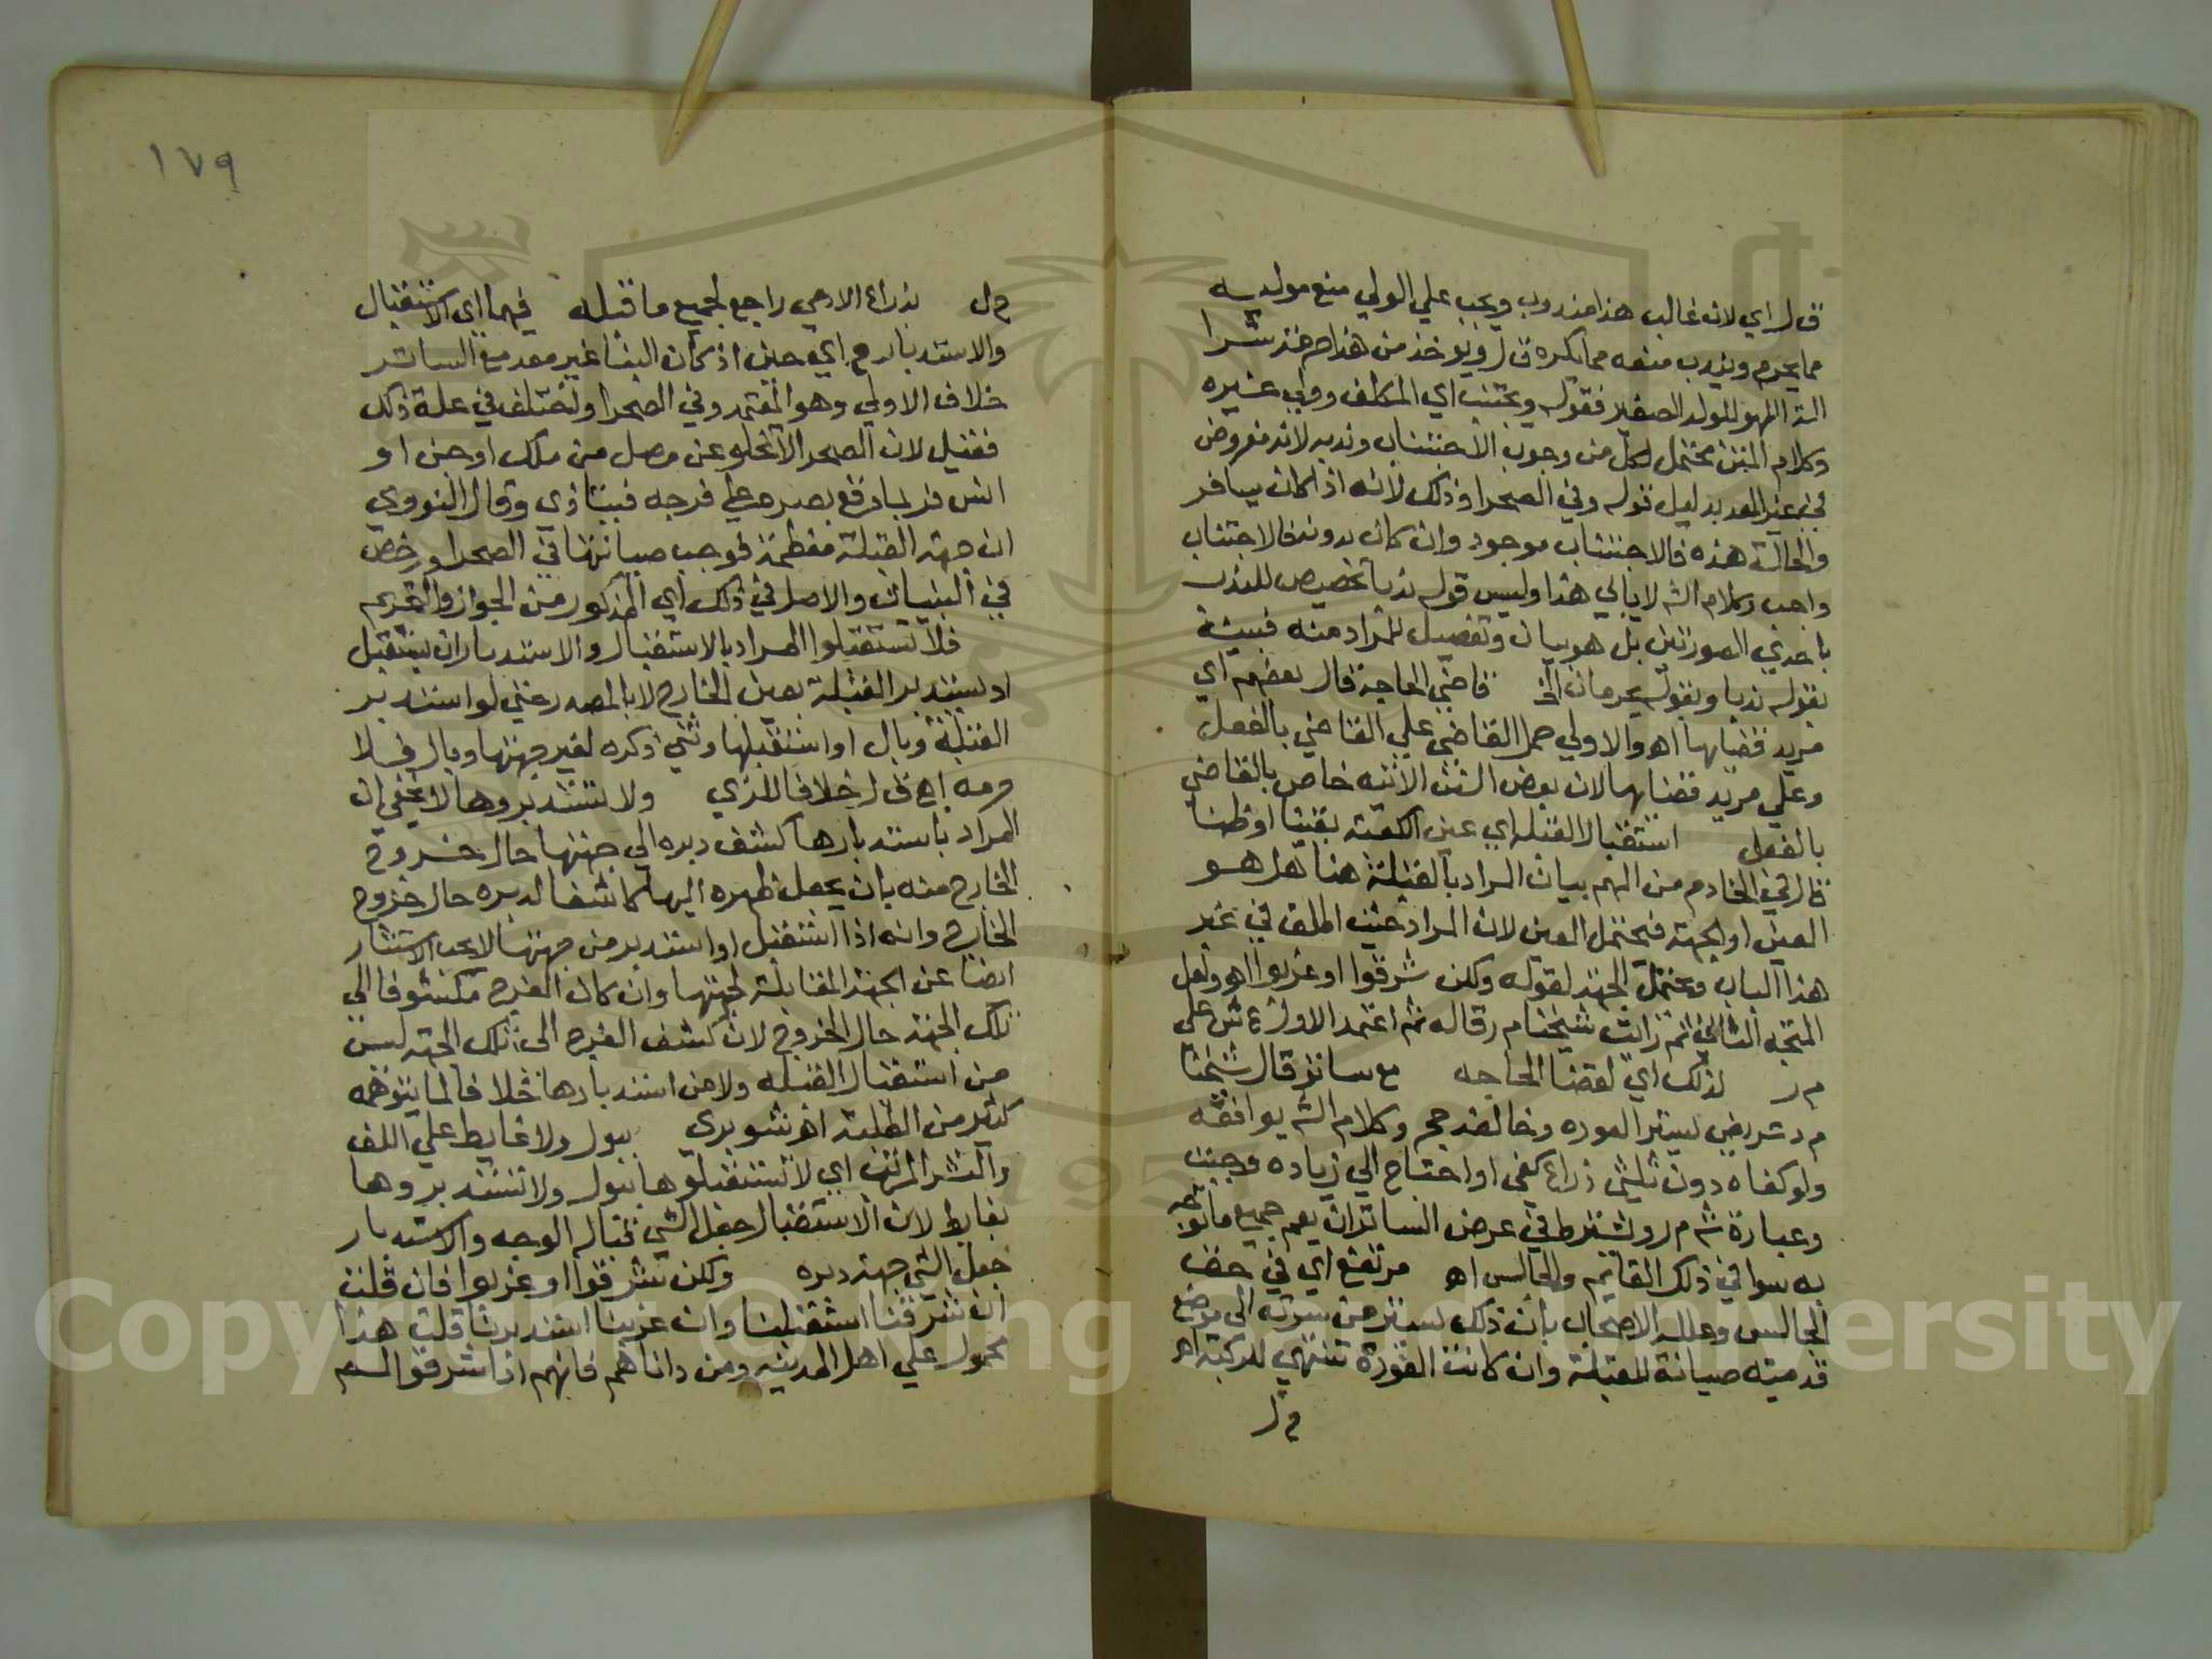 ق ل اي لان غالب هذا مندوب ويجب علي الولي منع موليه
مما يحرم ويندب منعه مما يكره ق ل ويوخذ من هذا حرمة شرا
الة اللهو للولد الصغير فقوله ويجتنب اي المكلف وولي غيره
وكلام المتن محتمل لكل من وجوب الاجتناب وندبه لانه مفروض
في غير المعد بدليل قوله وفي الصحرا وذلك لانه اذا كان بساتر
والحالة هذه فالاجتناب موجود وان كان بدونه فالاجتناب
واجب وكلام الش لا ينافي هذا وليس قوله ندبا تخصيص للمتن
باحدي الصورتين بل هو بيان وتفصيل للمراد منه فبينه
بقوله ندبا وبقوله يحرمان الخ قاضي الحاجة قال بعضهم اي
مريد قضايها اهـ والاولي حمل القاضي علي القاضي بالفعل
وعلي مريد قضايها لان بعض السنن الاتية خاص بالقاضي
بالفعل استقبال القبلة اي عين الكعبة يقينا او ظنا
قال في الخادم من المهم بيان المراد بالقبلة هنا هل هو
العين او الجهة فيحتمل العين لان المراد حيث اطلق في غير
هذا الباب ويحتمل الجهة لقوله ولكن شرقوا او غربوا اهـ ولعل
المتجه الثاني ثم رايت شيخنا م ر قاله ثم اعتمد الاول ع ش علي
م ر لذلك اي لقضا الحاجه مع ساتر قال شيخنا
م د عريض يستر العوره وخالفه حج وكلام الش يوافقه
ولو كفاه دون ثلثي ذراع كفي او احتاج الي زياده وجبت
وعبارة ش م ر ويشترط في عرض الساتر ان يعم جميع ما توجه
به سوا في ذلك القايم والجالس اهـ مرتفع اي في حق
الجالس وعلله الاصحاب بان ذلك يستر من سرته الي موضع
قدميه صيانة للقبلة وان كانت العورة تنتهي للركبة اهـ
م ل
م ل بذراع الادمي راجع لجميع ما قبله فيهما اي الاستقبال
والاستدبار م د اي حين اذ كان البنا غير معد مع الساتر
خلاف الاولي وهو المعتمد وفي الصحرا واختلف في علة ذلك
فقيل لان الصحرا لا تخلو عن مصل من ملك او جن او
انس فربما وقع بصره علي فرجه فيتاذي وقال النووي
ان جهة القبلة معظمة فوجب صيانتها في الصحرا ورخص
في البنيان والاصل في ذلك اي المذكور من الجواز والتحريم
فلا تستقبلوا المراد بالاستقبال والاستدبار ان يستقبل
او يستدبر القبلة بعين الخارج لا بالصدر حتي لو استدبر
القبلة وبال او استقبلها وثني ذكره لغير جهتها وبال فلا
حرمه اهـ ق ل خلافا للزي ولا تستدبروها لا يخفي ان
المراد باستدبارها كشف دبره الي جهتها حال خروج
الخارج منه بان يجعل ظهره اليها كاشفا لدبره حال خروج
الخارج وانه اذا استقبل او استدبر من جهتها لا يجب الاستتار
ايضا عن الجهة المقابلة لجهتها وان كان الفرج مكشوفا الي
تلك الجهة حال الخروج لان كشف الفرج الي تلك الجهة ليس
من استقبال القبلة ولا من استدبارها خلافا لما يتوهمه
كثير من الطلبة اهـ شوبري ببول ولا غايط علي اللف
والنشر المرتب اي لا تستقبلوها ببول ولا تستدبروها
بغايط لان الاستقبال جعل الشي قبالة الوجه والاستدبار
جعل الشي جهة دبره ولكن شرقوا او غربوا فان قلت
ان شرقنا استقبلنا وان غربنا استدبرنا قلت هذا
محمول علي اهل المدينه ومن داناهم فانهم اذا شرقوا لم
١٧٩
Copyright © King Saud University
1957